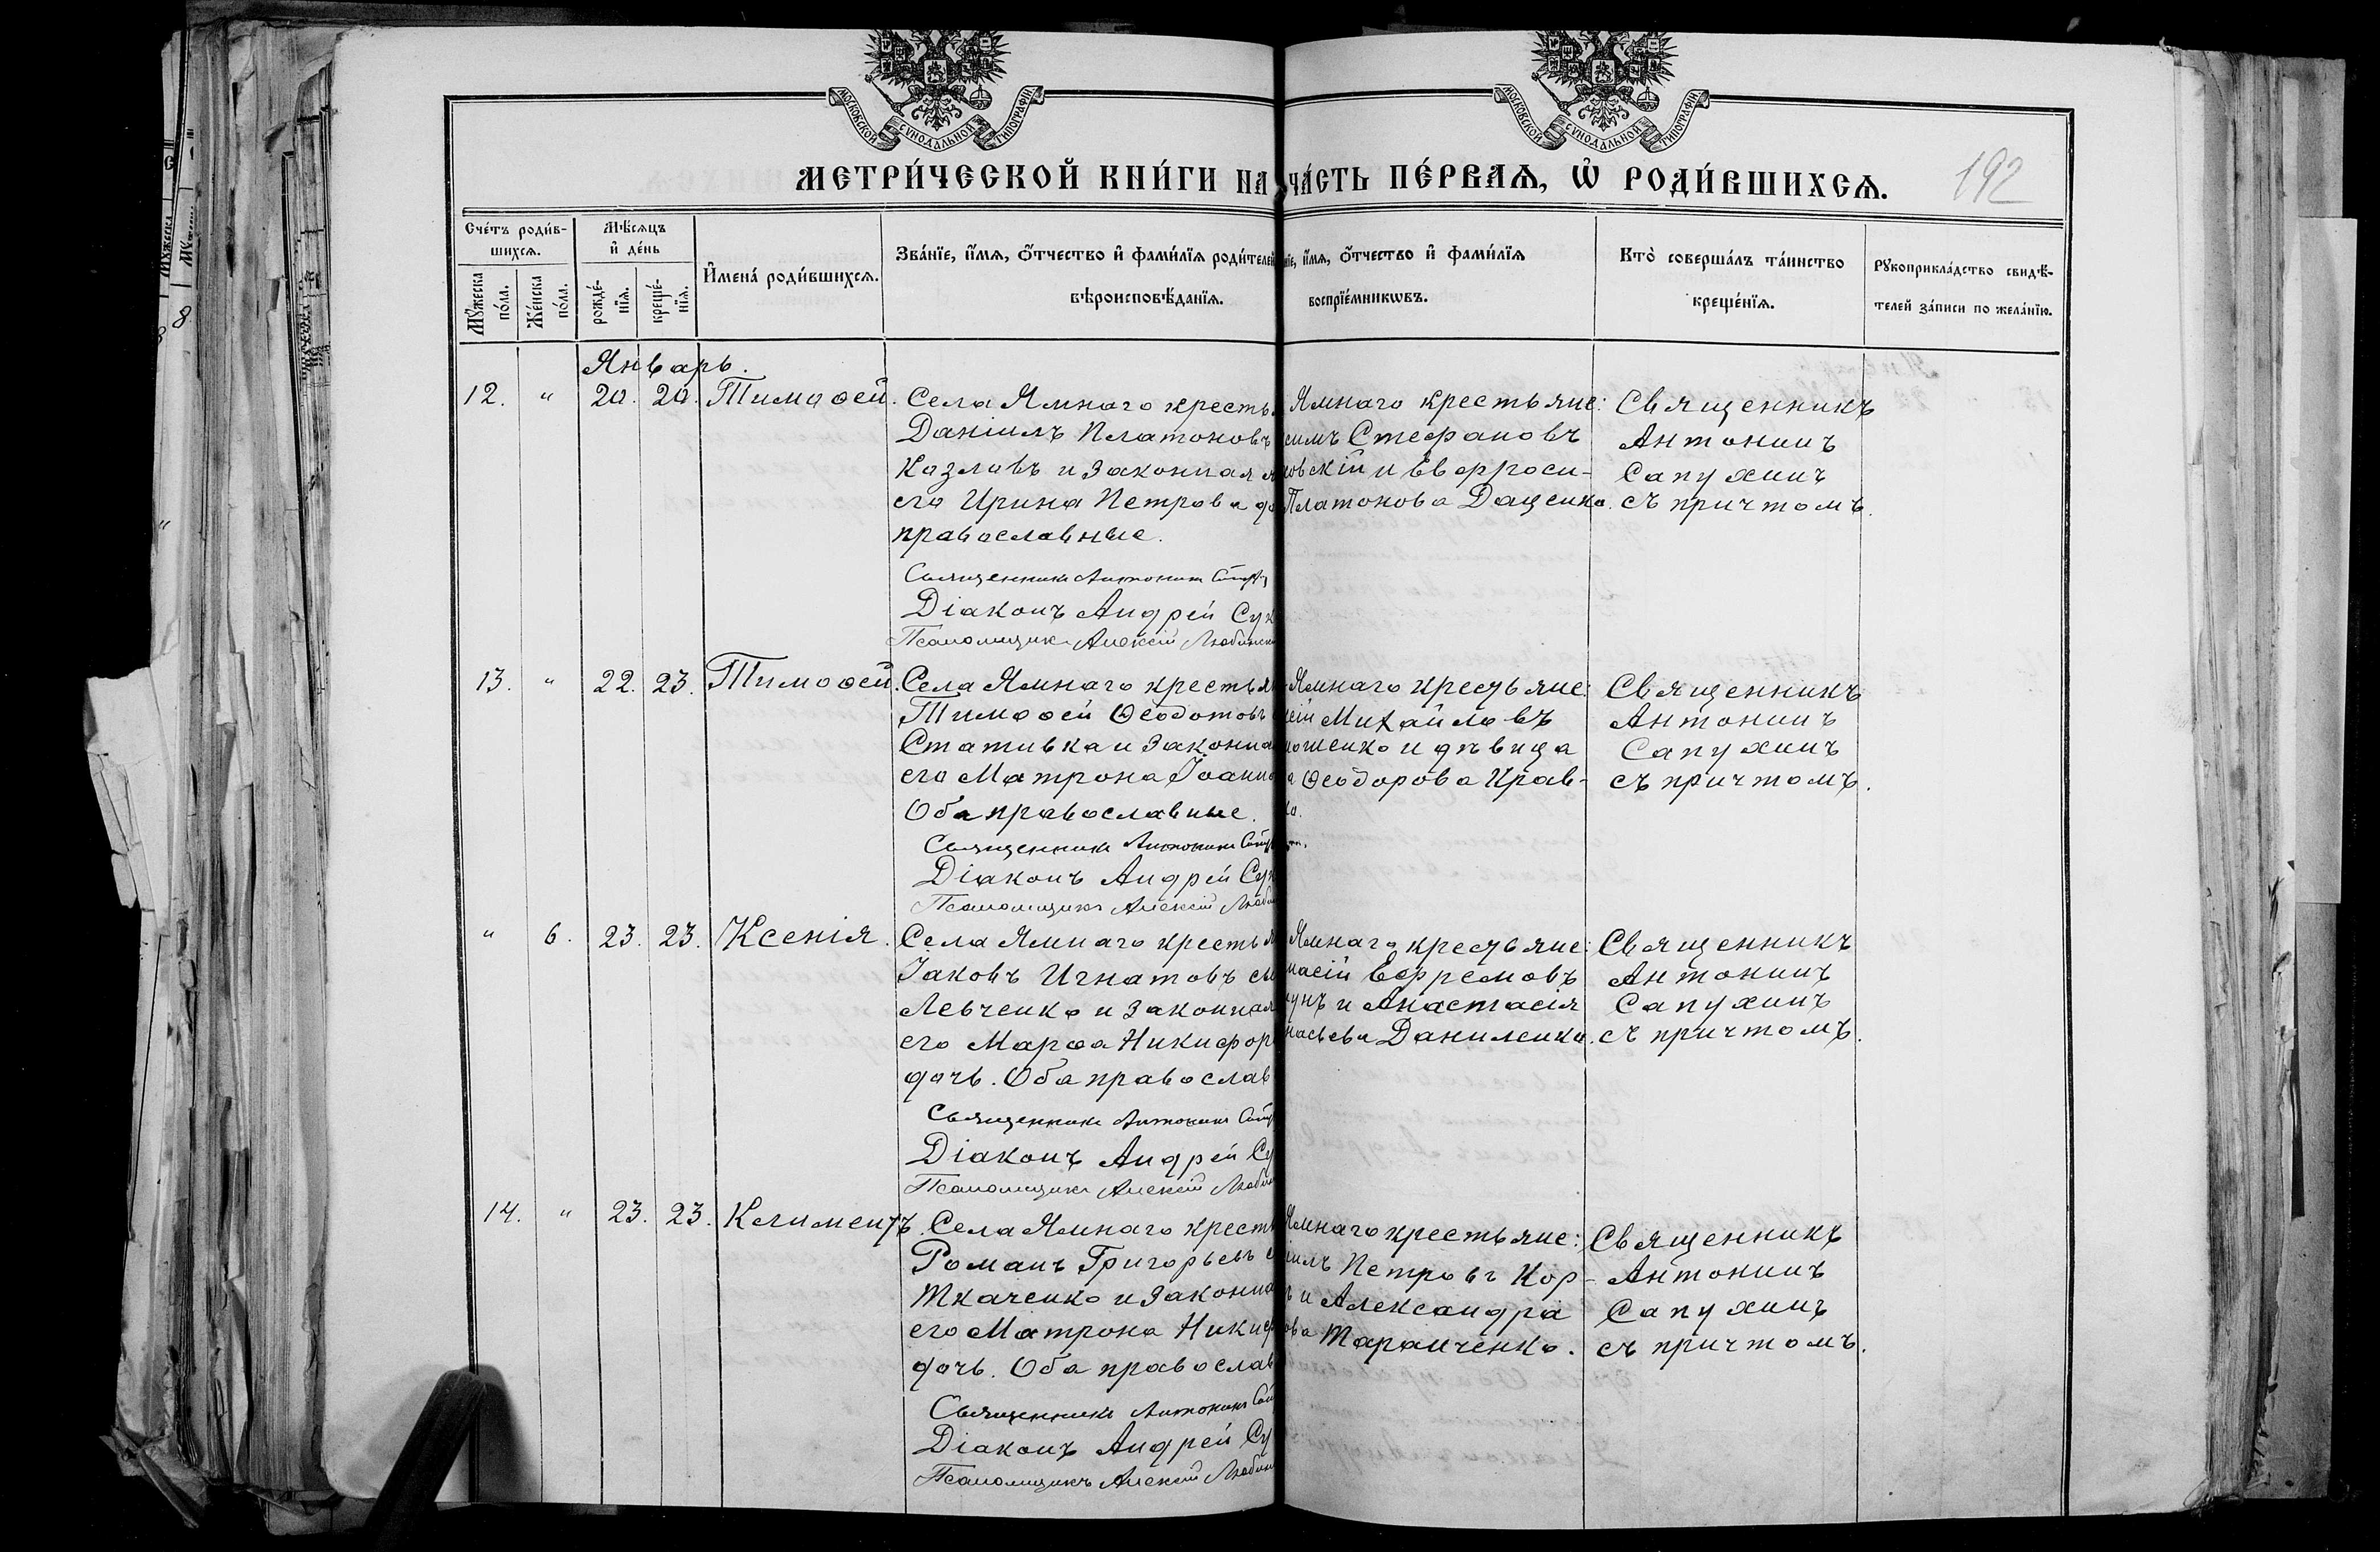 МОСКОВСКОЙ СѴНОДАЛЬНОЙ ТИПОГРАФІИ
МОСКОВСКОЙ СѴНОДАЛЬНОЙ ТИПОГРАФІИ
МЕТРИ́ЧЕСКОЙ КНИ́ГИ НА
ЧА́СТЬ ПЕ́РВАѦ, Ѡ҆ РОДИ́ВШИХСѦ.
192
Сче́тъ роди́в-
шихсѧ.
Мꙋ́жеска по́ла.
Же́нска по́ла.
Мѣ́сѧцъ
и҆ де́нь
рожде́-нїѧ.
креще́-нїѧ.
И҆мена́ роди́вшихсѧ.
Зва́нїе, и҆́мѧ, ѻ҆́тчество и҆ фами́лїѧ роди́телей
вѣроисповѣ́данїѧ.
нїе, и҆́мѧ, ѻ҆́тчество и҆ фами́лїѧ
воспрїе́мникѡвъ.
Кто̀ соверша́лъ та́инство
креще́нїѧ.
Рꙋкоприкла́дство свидѣ́-
телей за́писи по жела́нїю.
Январь.
12. " 20. 20. Тимоѳей. Села Ямнаго кресть
Даніилъ Платоновъ
Козловъ и законная
его Ирина Петрова
православные.
Священникъ Антонинъ
Діаконъ Андрей
Псаломщикъ Алексій
Ямнаго крестьяне:
симъ Стефановъ
овскій и Евфроси-
Платонова Даценко.
Священникъ
Антонинъ
Сапухинъ
съ причтомъ.
13. " 22. 23. Тимоѳей. Села Ямнаго крестья
Тимоѳей Ѳеодотовъ
Стативка и законна
его Матрона Іоанно
Оба православные.
Священникъ Антонинъ
Діаконъ Андрей
Псаломщикъ Алексій
Ямнаго крестьяне:
сій Михайловъ
ошенко и дѣвица
а Ѳеодорова Крав-
ко.
Священникъ
Антонинъ
Сапухинъ
съ причтомъ.
" 6. 23. 23. Ксенія. Села Ямнаго крестья
Іаковъ Игнатовъ
Левченко и законная
его Марѳа Никифор
дочь. Оба православ
Священникъ Антонинъ
Діаконъ Андрей
Псаломщикъ Алексій
Ямнаго крестьяне:
насій Ефремовъ
унъ и Анастасія
насьева Даниленко.
Священникъ
Антонинъ
Сапухинъ
съ причтомъ.
14. " 23. 23. Климентъ. Села Ямнаго кресть
Романъ Григорьевъ
Ткаченко и законна
его Матрона Никиф
дочь. Оба православ
Священникъ Антонинъ
Діаконъ Андрей
Псаломщикъ Алексій
Ямнаго крестьяне:
іилъ Петровъ Кор-
ъ и Александра
ова Таранченко.
Священникъ
Антонинъ
Сапухинъ
съ причтомъ.